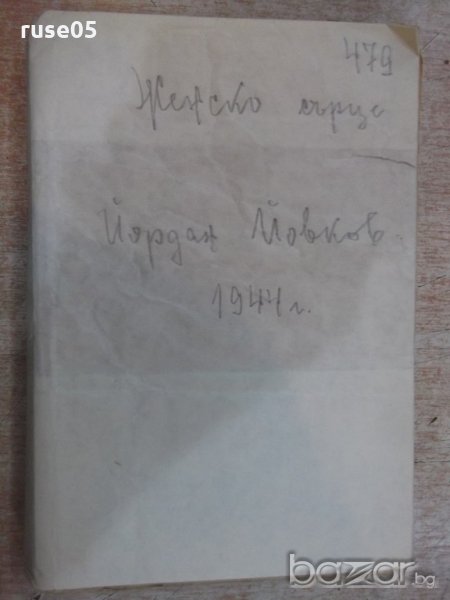 ruse05
479
Женско сърце
Йордан Йовков.
1944 г.
bazar.bg